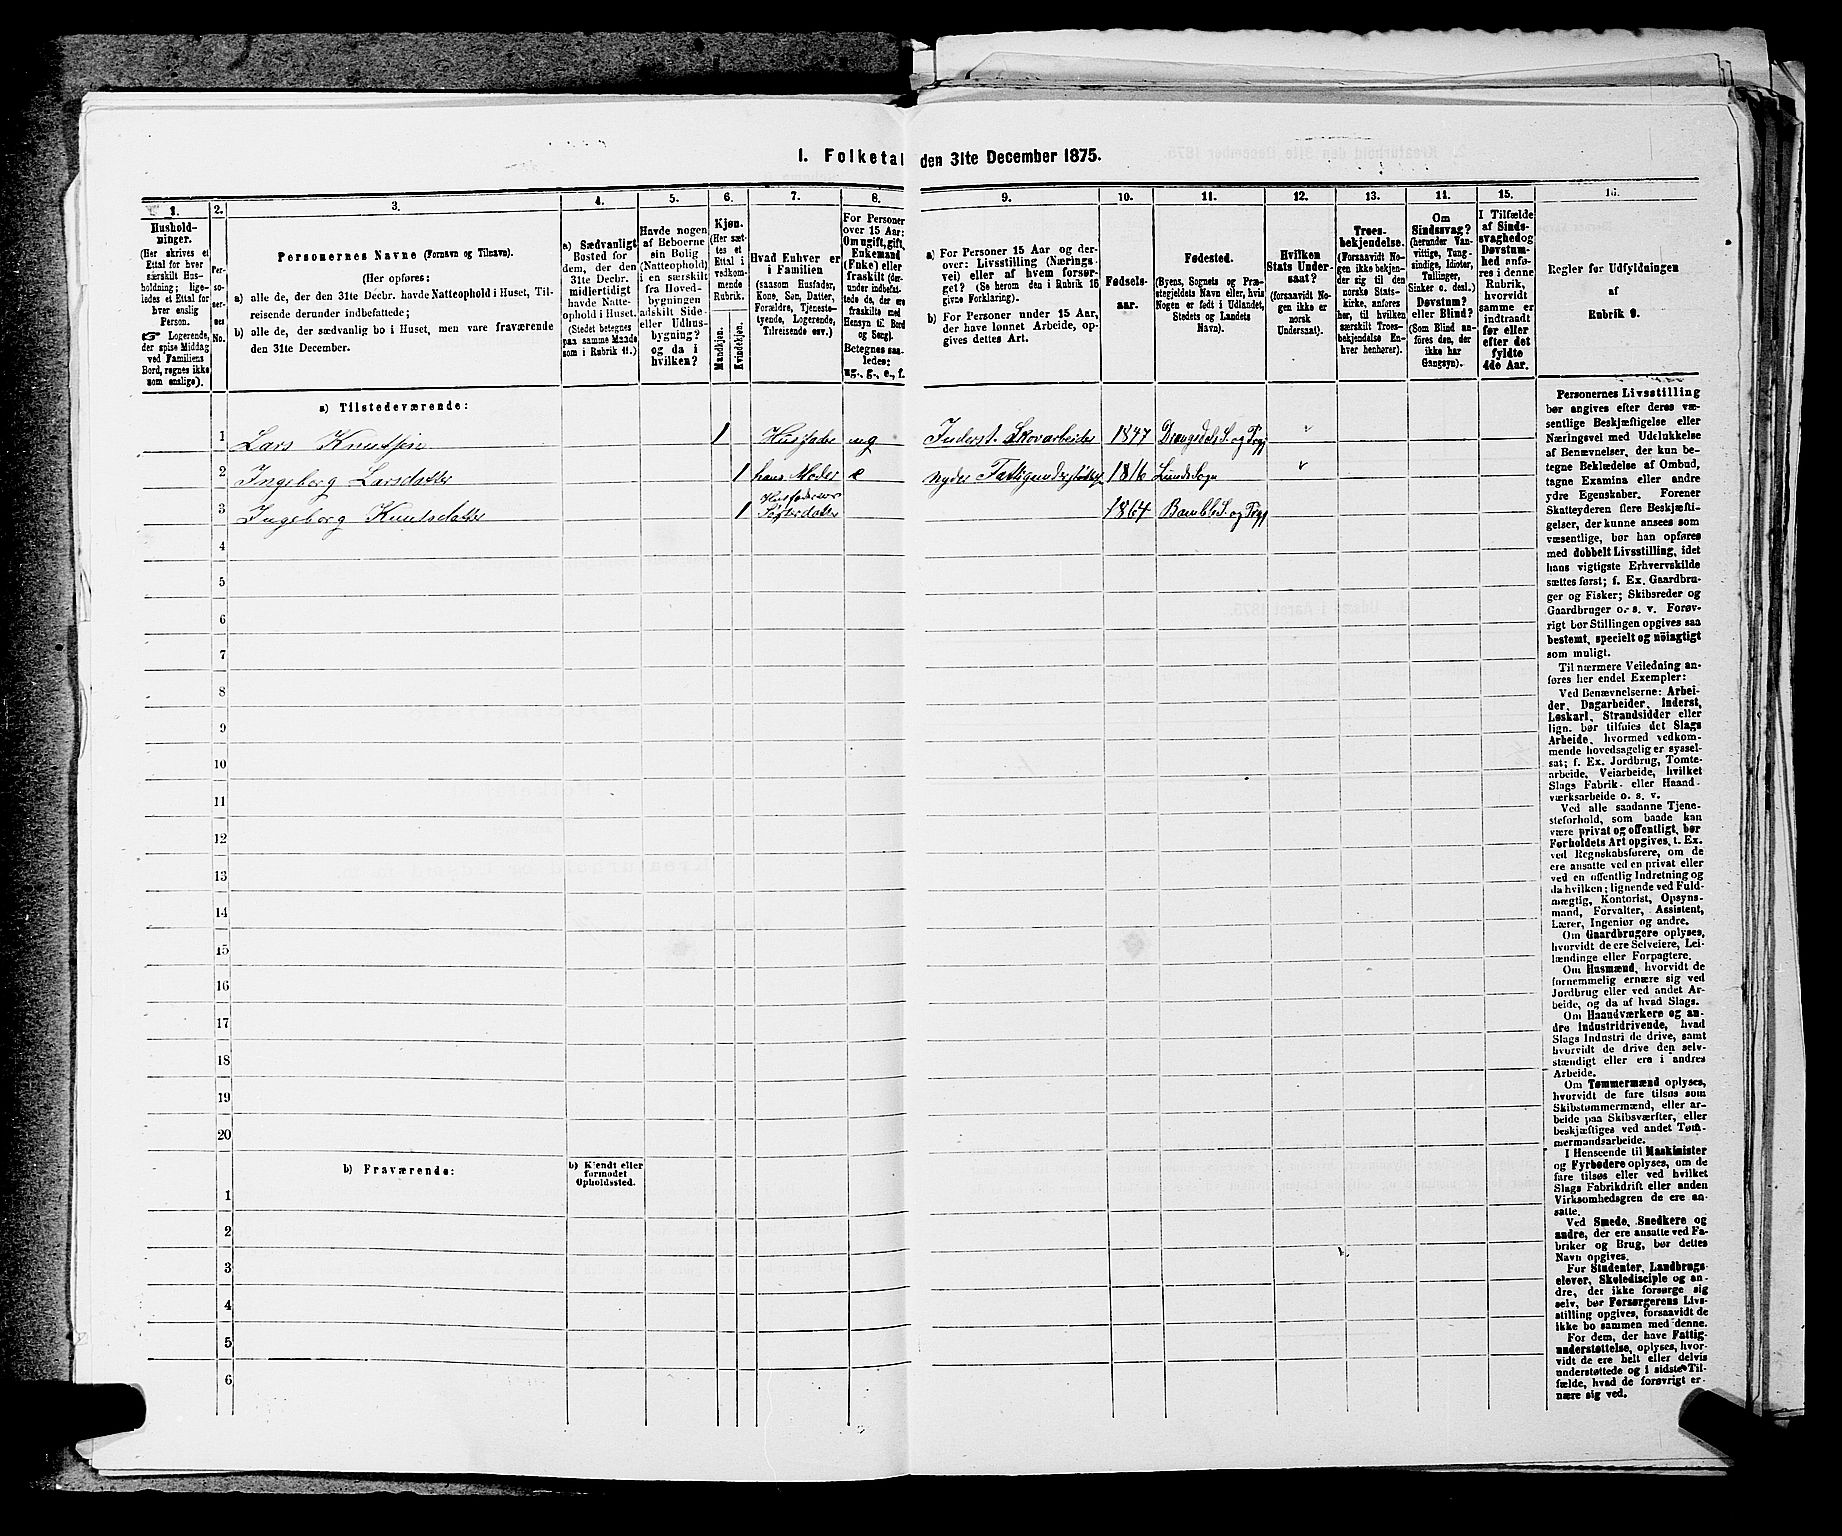 I. Folketal den 31te December 1875.
1.
Hushold-
ninger.
(Her skrives et
Ettal for hver
særskilt Hus-
holdning; lige-
ledes et Ettal for
hver enslig
Person.
Logerende,
der spise Middag
ved Familiens
Bord, regnes ikke
som enslige).
2.
Per-
so-
ner-
nes
No.
3.
Personernes Navne (Fornavn og Tilnavn).
(Her opføres:
a) alle de, der den 31te Decbr. havde Natteophold i Huset, Til-
reisende derunder indbefattede;
b) alle de, der sædvanlig bo i Huset, men vare fraværende
den 31te December.
4.
a) Sædvanligt
Bosted for
dem, der den
31te Decbr.
midlertidigt
havde Natte-
ophold i Huset.
(Stedet betegnes
paa samme Maade
som i Rubrik 11.)
5.
Havde nogen
af Beboerne
sin Bolig
(Natteophold)
i en særskilt
fra Hoved-
bygningen
adskilt Side-
eller Udhus-
bygning?
og da i
hvilken?
6.
Kjøn.
(Her sæt-
tes et
Ettal i
vedkom-
mende
Rubrik.
Mandkjøn.
Kvindekjøn.
7.
Hvad Enhver er
i Familien
(saasom Husfader,
Kone, Søn, Datter,
Forældre, Tjeneste-
tyende, Logerende,
Tilreisende osv.)
8.
For Personer
over 15 Aar:
Om ugift, gift,
Enkemand
(Enke) eller
fraskilt (der-
under indbefat-
tede de, der ere
fraskilte med
Hensyn til Bord
og Seng).
Betegnes saa-
ledes:
ug., g., e., f.
9.
a) For Personer 15 Aar og der-
over: Livsstilling (Nærings-
vei) eller af hvem forsør-
get? (Se herom den i Rubrik 16
givne Forklaring).
b) For Personer under 15 Aar,
der have lønnet Arbeide, op-
gives dettes Art.
10.
Fødsels-
aar.
11.
Fødested.
(Byens, Sognets og Præ-
stegjeldets Navn eller, hvis
Nogen er født i Udlandet,
Stedets og Landets
Navn).
12.
Hvilken
Stats Under-
saat?
(forsaavidt No-
gen ikke er
norsk
Undersaat).
13.
Troes-
bekjendelse.
(Forsaavidt No-
gen ikke bekjen-
der sig til den
norske Stats-
kirke, anføres
her, til hvilken
særskilt Troes-
bekjendelse En-
hver henhører).
14.
Om
Sindssvag?
(herunder Van-
vittige, Tung-
sindige, Idioter,
Tullinger,
Sinker o. desl.)
Døvstum?
eller Blind?
(Som Blind an-
føres den, der
ikke har
Gangsyn).
15.
I Tilfælde
af Sinds-
svaghed og
Døvstum-
hed anfø-
res i denne
Rubrik,
hvorvidt
samme er
indtraadt
før eller
efter det
fyldte
4de Aar.
16.
Regler for Udfyldningen
af
Rubrik 9.
a) Tilstedeværende:
1 Lars Knutsen 1 Husfader ug Inderst. Skovarbeider 1847 Drangedals S. og Prgj "
2 Ingeborg Larsdatter 1 hans Moder e nyder Fattigunderstøttelse 1816 Lunde Sogn "
3 Ingeborg Knutsdatter 1 Husfaderens Søsterdatter 1864 Bamble S. og Prgj
4
5
6
7
8
9
10
11
12
13
14
15
16
17
18
19
20
b) Fraværende:
b) Kjendt eller
formodet
Opholdssted.
1
2
3
4
5
6
Personernes Livsstilling
bør angives efter deres væ-
sentlige Beskjæftigelse eller
Næringsvei med Udelukkelse
af Benævnelser, der kun be-
tegne Beklædelse af Ombud,
tagne Examina eller andre
ydre Egenskaber. Forener
Skatteyderen flere Beskjæfti-
gelser, der kunne ansees som
væsentlige, bør han opføres
med dobbelt Livsstilling, idet
hans vigtigste Erhvervskilde
sættes først; f. Ex. Gaardbru-
ger og Fisker; Skibsreder og
Gaardbruger o. s. v. Forøv-
rigt bør Stillingen opgives saa
bestemt, specielt og nöiagtigt
som muligt.
Til nærmere Veiledning an-
føres her endel Exempler:
Ved Benævnelserne: Arbei-
der, Dagarbeider, Inderst,
Løskarl, Strandsidder eller
lign. bør tilføies det Slags
Arbeide, hvormed vedkom-
mende hovedsagelig er syssel-
sat; f. Ex. Jordbrug, Tomte-
arbeide, Veiarbeide, hvilket
Slags Fabrik- eller Haand-
værksarbeide o. s. v.
Ved alle saadanne Tjene-
steforhold, som baade kan
være privat og offentligt, bør
Forholdets Art opgives, f. Ex.
ved Regnskabsførere, om de
ere ansatte ved en privat eller
ved en offentlig Indretning og
da hvilken; lignende ved Fuld-
mægtig, Kontorist, Opsyns-
mand, Forvalter, Assistent,
Lærer, Ingeniør og andre.
Om Gaardbrugere oplyses,
hvorvidt de ere Selveiere, Lei-
lændinge eller Forpagtere.
Om Husmænd, hvorvidt de
fornemmelig ernære sig ved
Jordbrug eller ved andet Ar-
beide, og da af hvad Slags.
Om Haandværkere og an-
dre Industridrivende, hvad
Slags Industri de drive, samt
hvorvidt de drive den selv-
stændigt eller ere i andres
Arbeide.
Om Tømmermænd oplyses,
hvorvidt de fare tilsøs som
Skibstømmermænd, eller ar-
beide paa Skibsværfter, eller
beskjæftiges ved andet Tøm-
mermandsarbeide.
I Henseende til Maskinister
og Fyrbødere oplyses, om de
fare tilsøs eller ved hvilket
Slags Fabrikdrift eller anden
Virksomhedsgren de ere an-
satte.
Ved Smede, Snedkere og
andre, der ere ansatte ved Fa-
briker og Brug, bør dettes
Navn opgives.
For Studenter, Landbrugs-
elever, Skoledisciple og an-
dre, der ikke forsørge sig
selv, bør Forsørgerens Livs-
stilling opgives, forsaavidt de
ikke bo sammen med denne.
For dem, der have Fattig-
understøttelse, oplyses, hvor-
vidt de ere helt eller delvis
understøttede og i sidste Til-
fælde, hvad de forøvrigt er-
nære sig ved.